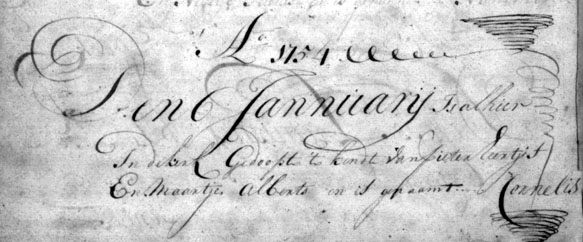 Ao 1754
Den 6 Jannuarij Is alhier
In de kerk Gedoopt 't kindt van Pieter Eertjes
En Maartje Alberts en is genaamt Kornelis